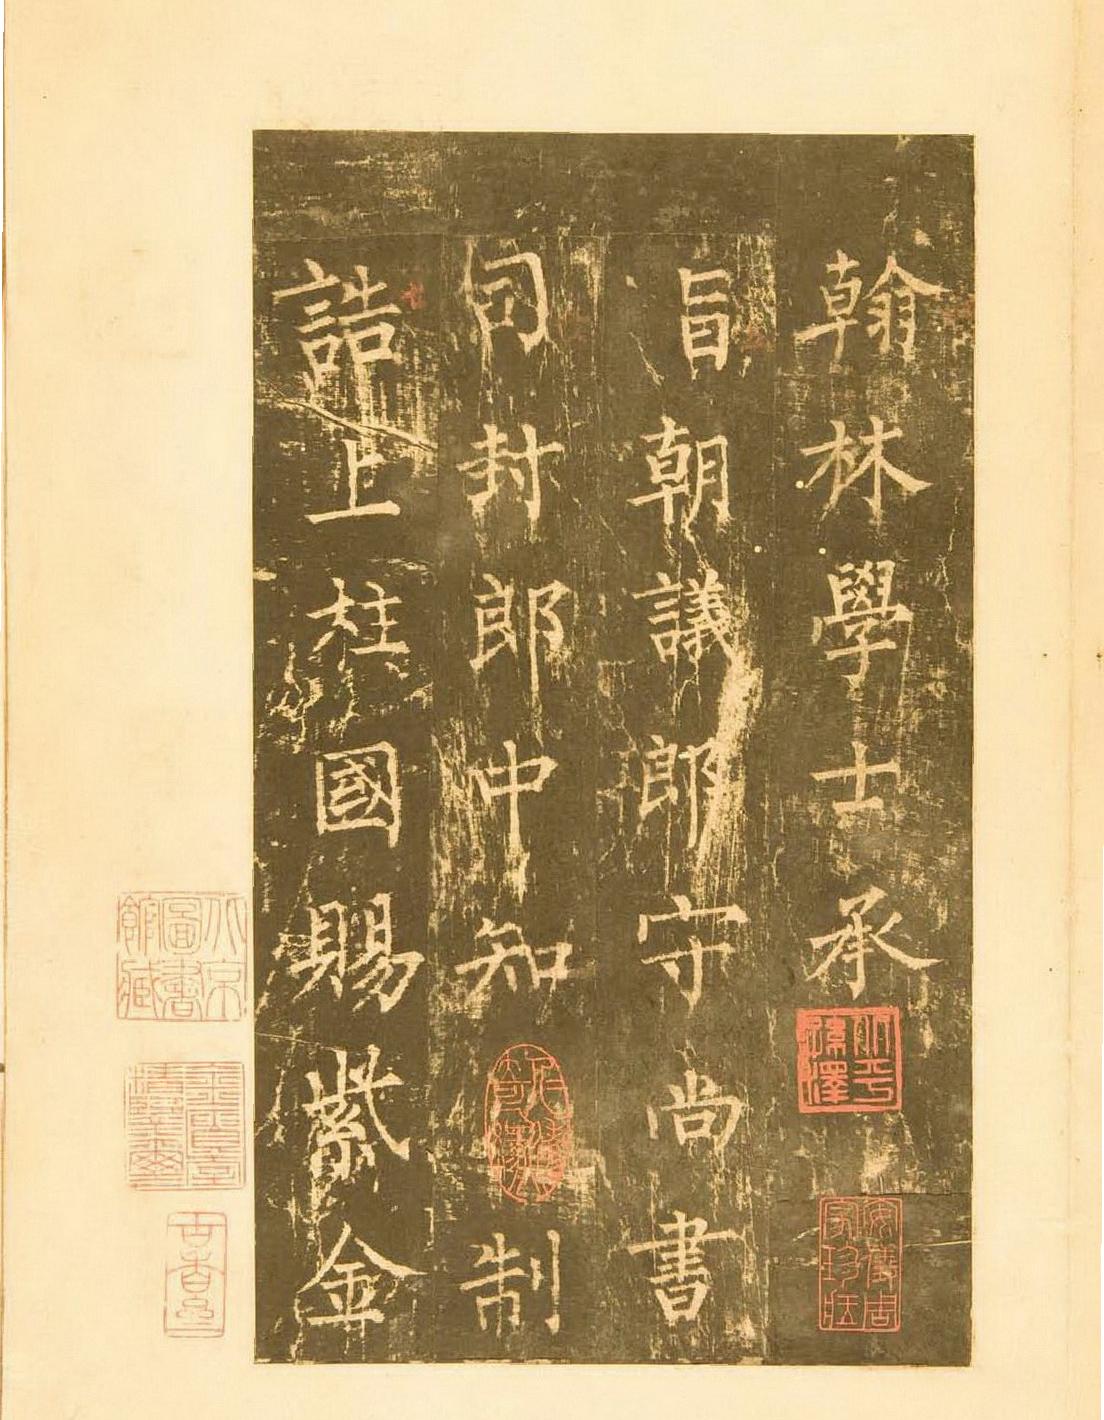 翰林學士承
旨朝議郎守尚書
司封郎中知制
誥上柱國賜紫金
安儀周
家珍藏
北京
圖書
館藏